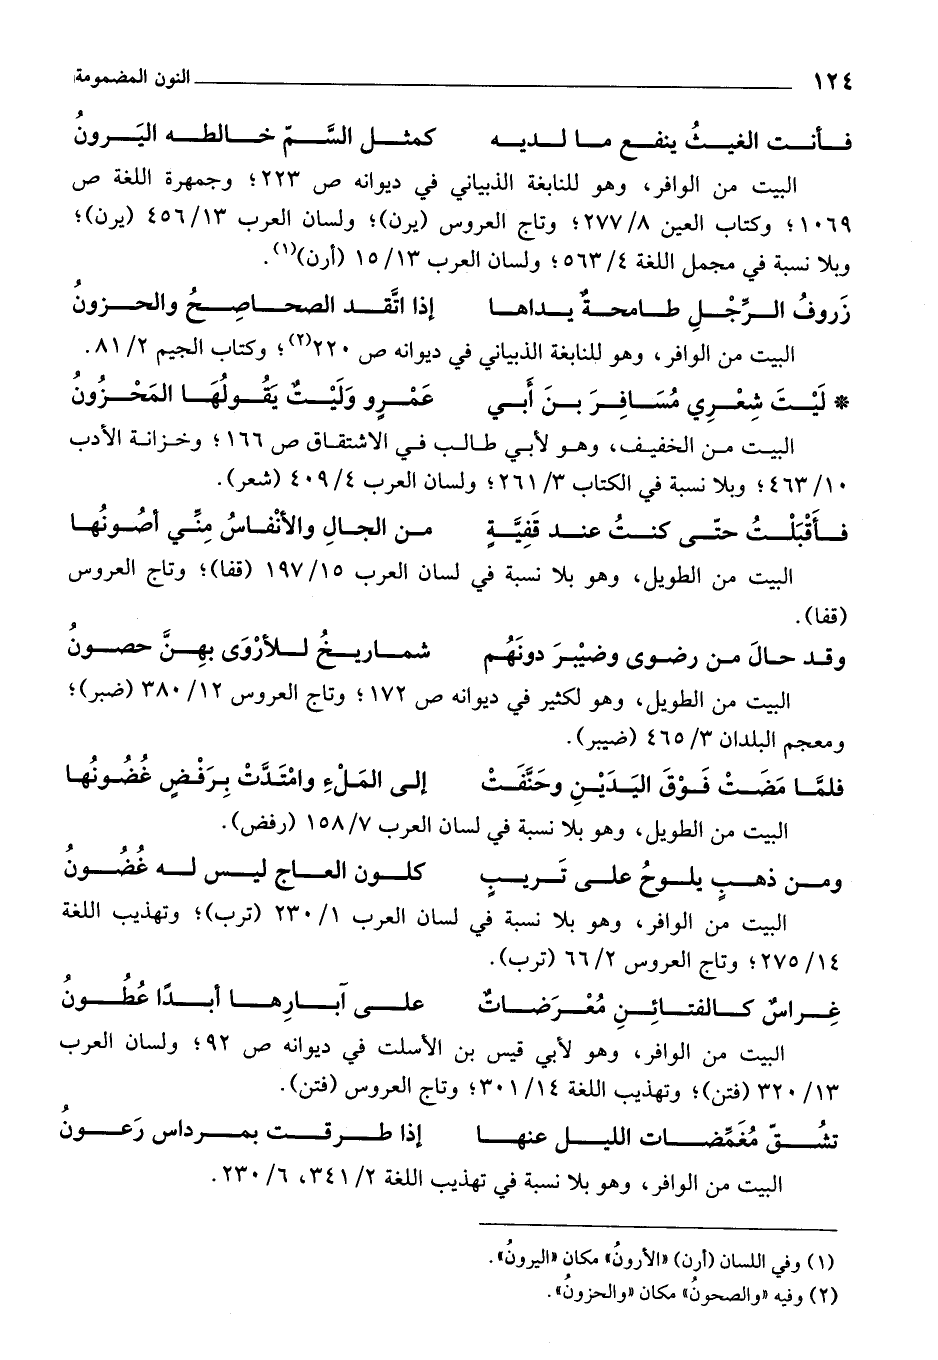 ١٢٤ النون المضمومة
فأنت الغيثُ ينفع ما لديه كمثل السَّمّ خالطه اليَرونُ
البيت من الوافر، وهو للنابغة الذبياني في ديوانه ص ٢٢٣؛ وجمهرة اللغة ص
١٠٦٩؛ وكتاب العين ٨/ ٢٧٧؛ وتاج العروس (يرن)؛ ولسان العرب ١٣/ ٤٥٦ (يرن)؛
وبلا نسبة في مجمل اللغة ٤/ ٥٦٣؛ ولسان العرب ١٣/ ١٥ (أرن)(١).
زَروفُ الرِّجْلِ طامحةٌ يداها إذا اتَّقد الصحاصِحُ والحزونُ
البيت من الوافر، وهو للنابغة الذبياني في ديوانه ص ٢٢٠(٢)؛ وكتاب الجيم ٢/ ٨١.
* لَيْتَ شِعْرِي مُسَافِرَ بنَ أَبي عَمْرٍو وَلَيْتٌ يَقُولُهَا المَحْزُونُ
البيت من الخفيف، وهو لأبي طالب في الاشتقاق ص ١٦٦؛ وخزانة الأدب
١٠/ ٤٦٣؛ وبلا نسبة في الكتاب ٣/ ٢٦١؛ ولسان العرب ٤/ ٤٠٩ (شعر).
فأَقْبَلْتُ حتّى كنتُ عند قَفِيَّةٍ من الجالِ والأنْفاسُ مِنِّي أصُونُها
البيت من الطويل، وهو بلا نسبة في لسان العرب ١٥/ ١٩٧ (قفا)؛ وتاج العروس
(قفا).
وقد حالَ من رضوى وضيْبَرَ دونَهُم شماريخُ للأرْوَى بهِنَّ حصونُ
البيت من الطويل، وهو لكثير في ديوانه ص ١٧٢؛ وتاج العروس ١٢/ ٣٨٠ (ضبر)؛
ومعجم البلدان ٣/ ٤٦٥ (ضيبر).
فلمَّا مَضَتْ فَوْقَ اليَدَيْنِ وحَنَّفَتْ إلى المَلْءِ وامْتَدَّتْ بِرَفْضٍ غُضُونُها
البيت من الطويل، وهو بلا نسبة في لسان العرب ٧/ ١٥٨ (رفض).
ومن ذهبٍ يلوحُ على تَريبٍ كلون العاج ليس له غُضُونُ
البيت من الوافر، وهو بلا نسبة في لسان العرب ١/ ٢٣٠ (ترب)؛ وتهذيب اللغة
١٤/ ٢٧٥؛ وتاج العروس ٢/ ٦٦ (ترب).
غِراسٌ كالفتائِنِ مُعْرَضاتٌ على آبارِها أبدًا عُطُونُ
البيت من الوافر، وهو لأبي قيس بن الأسلت في ديوانه ص ٩٢؛ ولسان العرب
١٣/ ٣٢٠ (فتن)؛ وتهذيب اللغة ١٤/ ٣٠١؛ وتاج العروس (فتن).
تشُقّ مُغَمِّضات الليل عنها إذا طرقت بمرداس رَعونُ
البيت من الوافر، وهو بلا نسبة في تهذيب اللغة ٢/ ٣٤١، ٦/ ٢٣٠.
(١) وفي اللسان (أرن) «الأرونُ» مكان «اليرونُ».
(٢) وفيه «والصحونُ» مكان «والحزونُ».